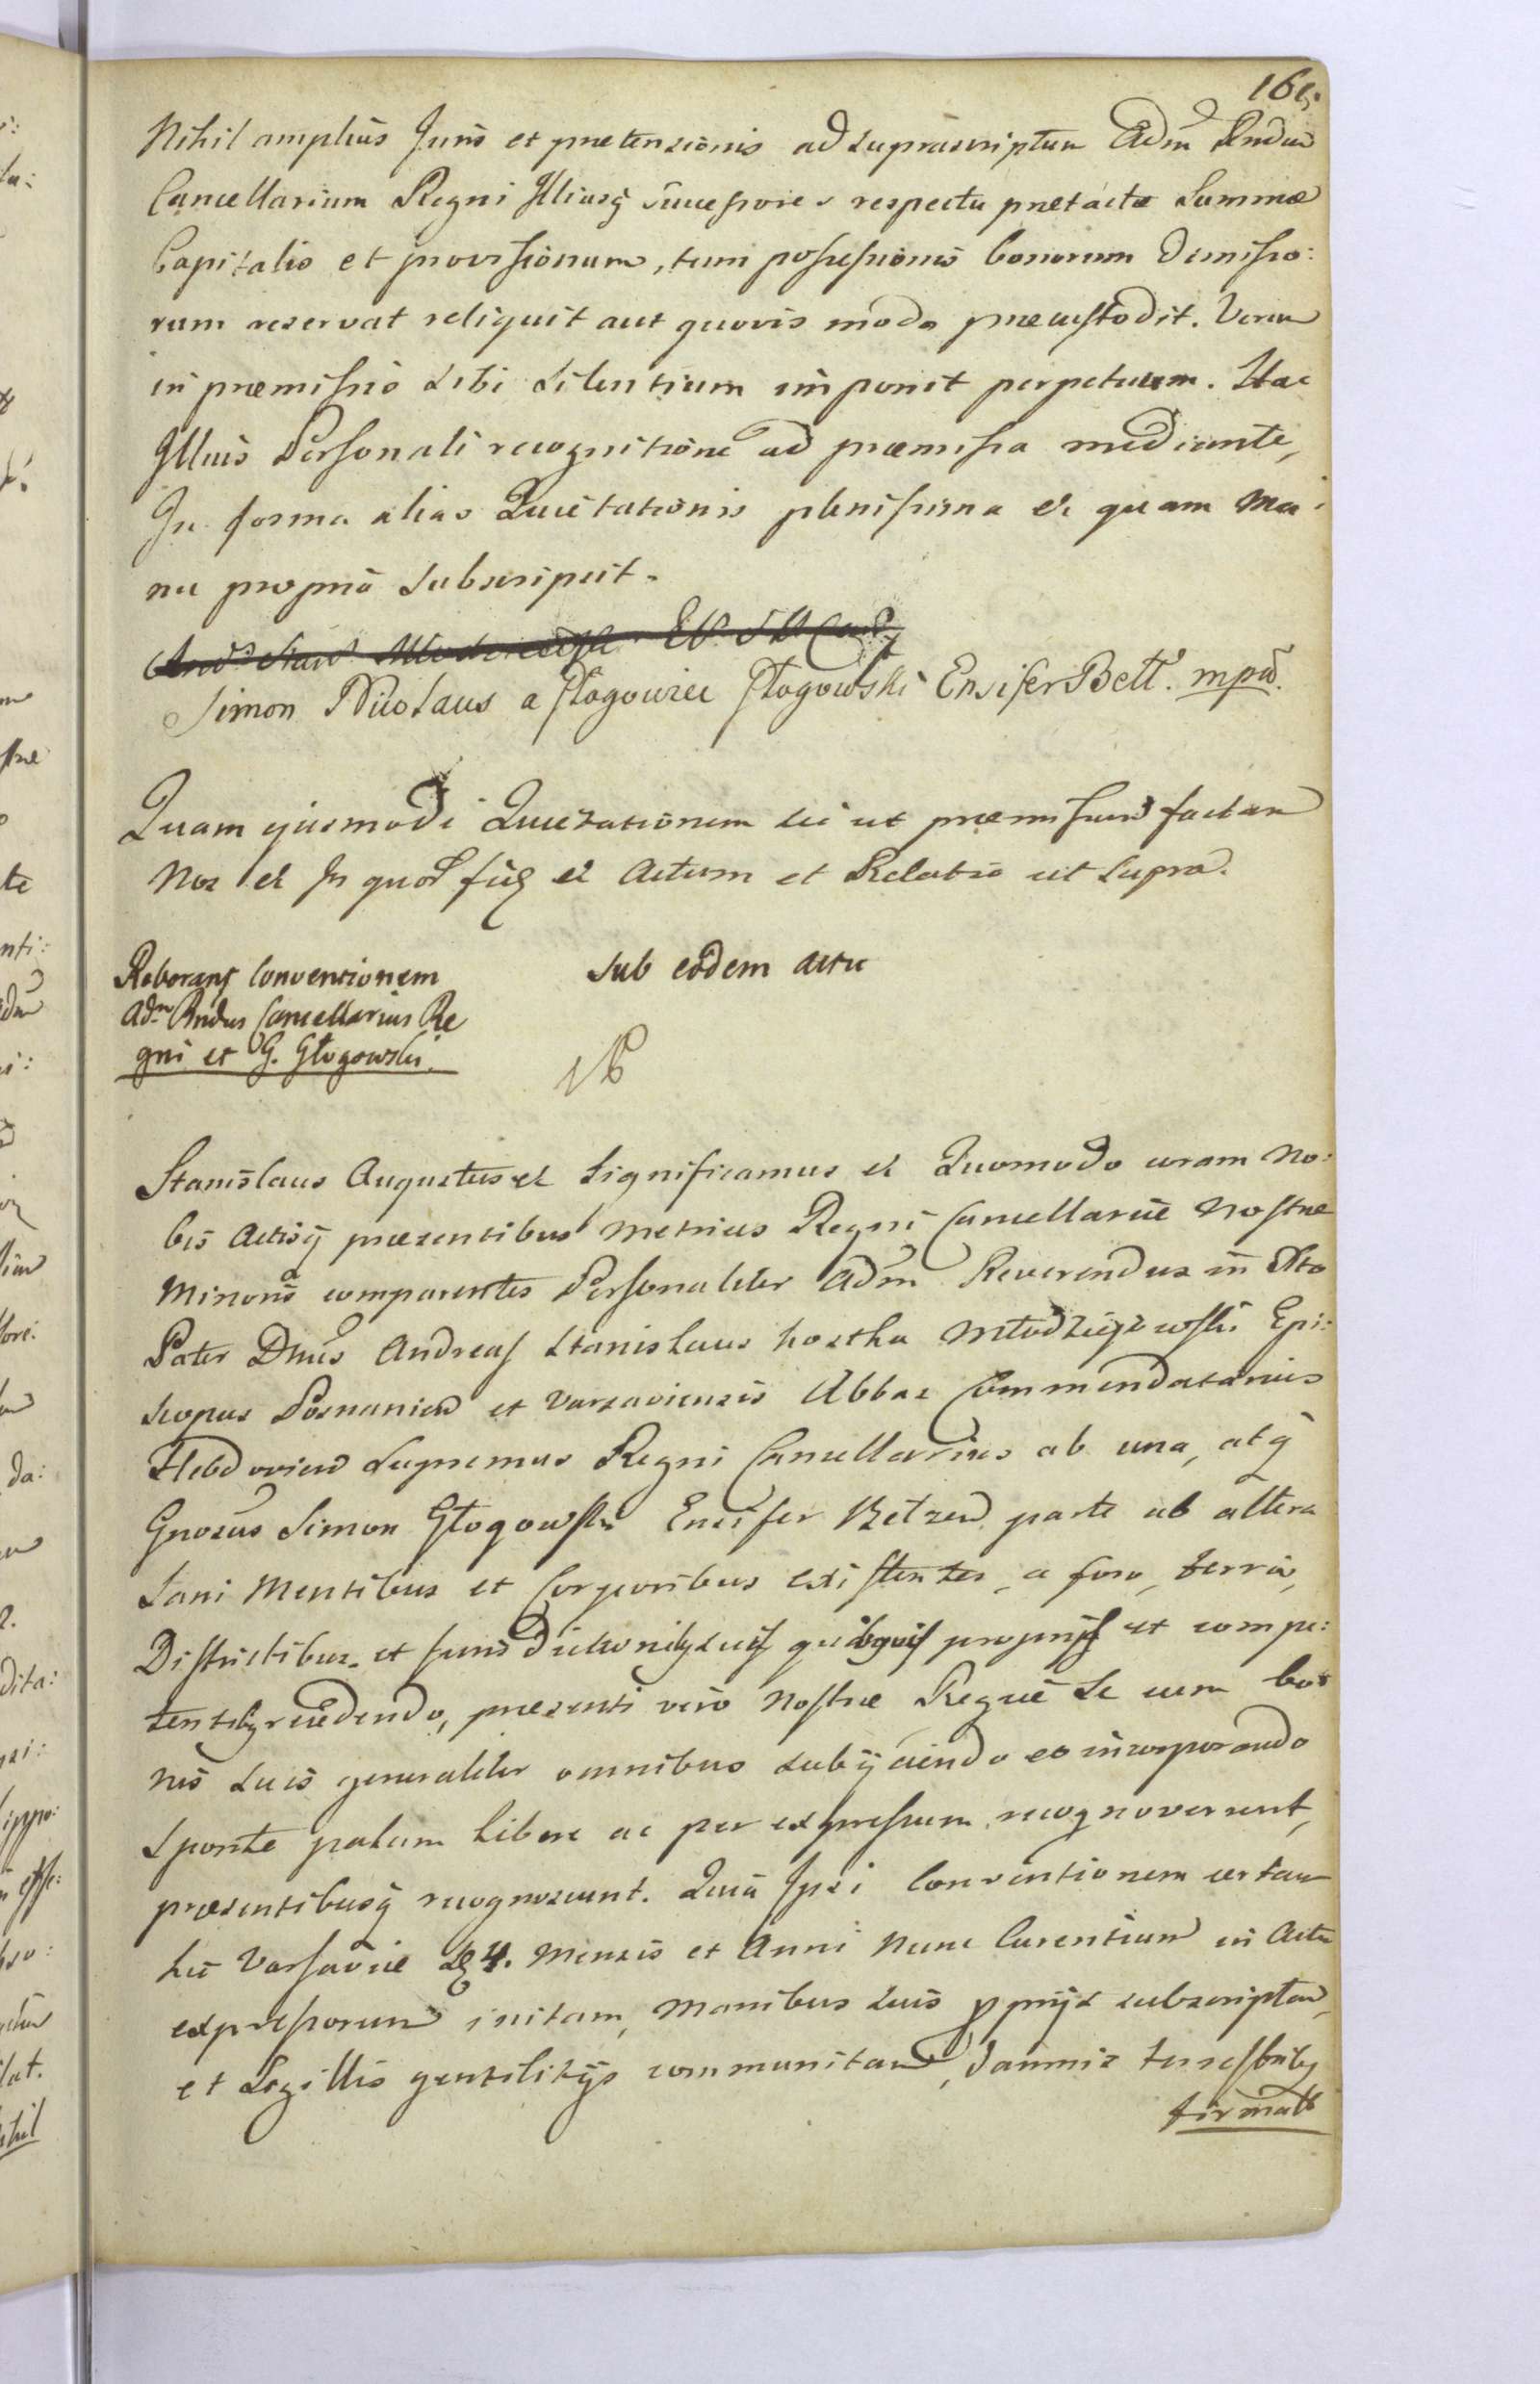 165.
Nihil amplius Juris et prætensionis ad suprascriptum Adm Rndum
Cancellarium Regni Illiusq successores respectu prætactæ Summæ
Capitalis et provisionum, tum possessionis bonorum dimisso:
rum reservat reliquit aut quovis modo præcustodit. Verum
in præmissis sibi silentium imponit perpetuum. Hac
Illius Personali recognitione ad præmissa mediante,
In forma alias Quietationis plenissima et quam Ma:
nu propria subscripsit.
Simon Nicolaus a Głogowiec Głogowski Ensifer Bełz. mpa.
Quam ejusmodi Quietationem sic ut præmissum factam
Nos et In quor fid et Actum et Relatio ut supra.
Roborans Conventionem
Adm Rndus Cancellarius Re
gni et G. Głogowski.
Sub eodem actu
Stanislaus Augustus et Significamus et Quomodo coram No:
bis Actisq præsentibus Metrices Regni Cancellariæ Nostræ
Minoris comparentes Personaliter Adm Reverendus in Xto
Pater Dnus Andreas Stanislaus Kostka Młodziejowski Epi:
scopus Posnanien et Varsaviensis Abbas Commendatarius
Hebdovien Supremus Regni Cancellarius ab una, atq
Gnosus Simon Głogowski Ensifer Belzen parte ab altera
Sani Mentibus et Corporibus existentes, a foro, terris,
Districtibus et Jurisdictionibq suis quibquis proprijs et compe:
tentibq recedendo, præsenti vero Nostræ Regiæ se cum bo
nis suis generaliter omnibus subijciendo et incorporando
Sponte palam libere ac per expressum recognoverunt,
præsentibusq recognoscunt. Quia Ipsi Conventionem certam
hic Varsaviæ D 4. Mensis et Anni Nunc Curentium in Actu
expressorum initam, Manibus suis pprijs subscriptam,
et Sigillis gentilitijs communitam, damnis terrestribq
firmatt